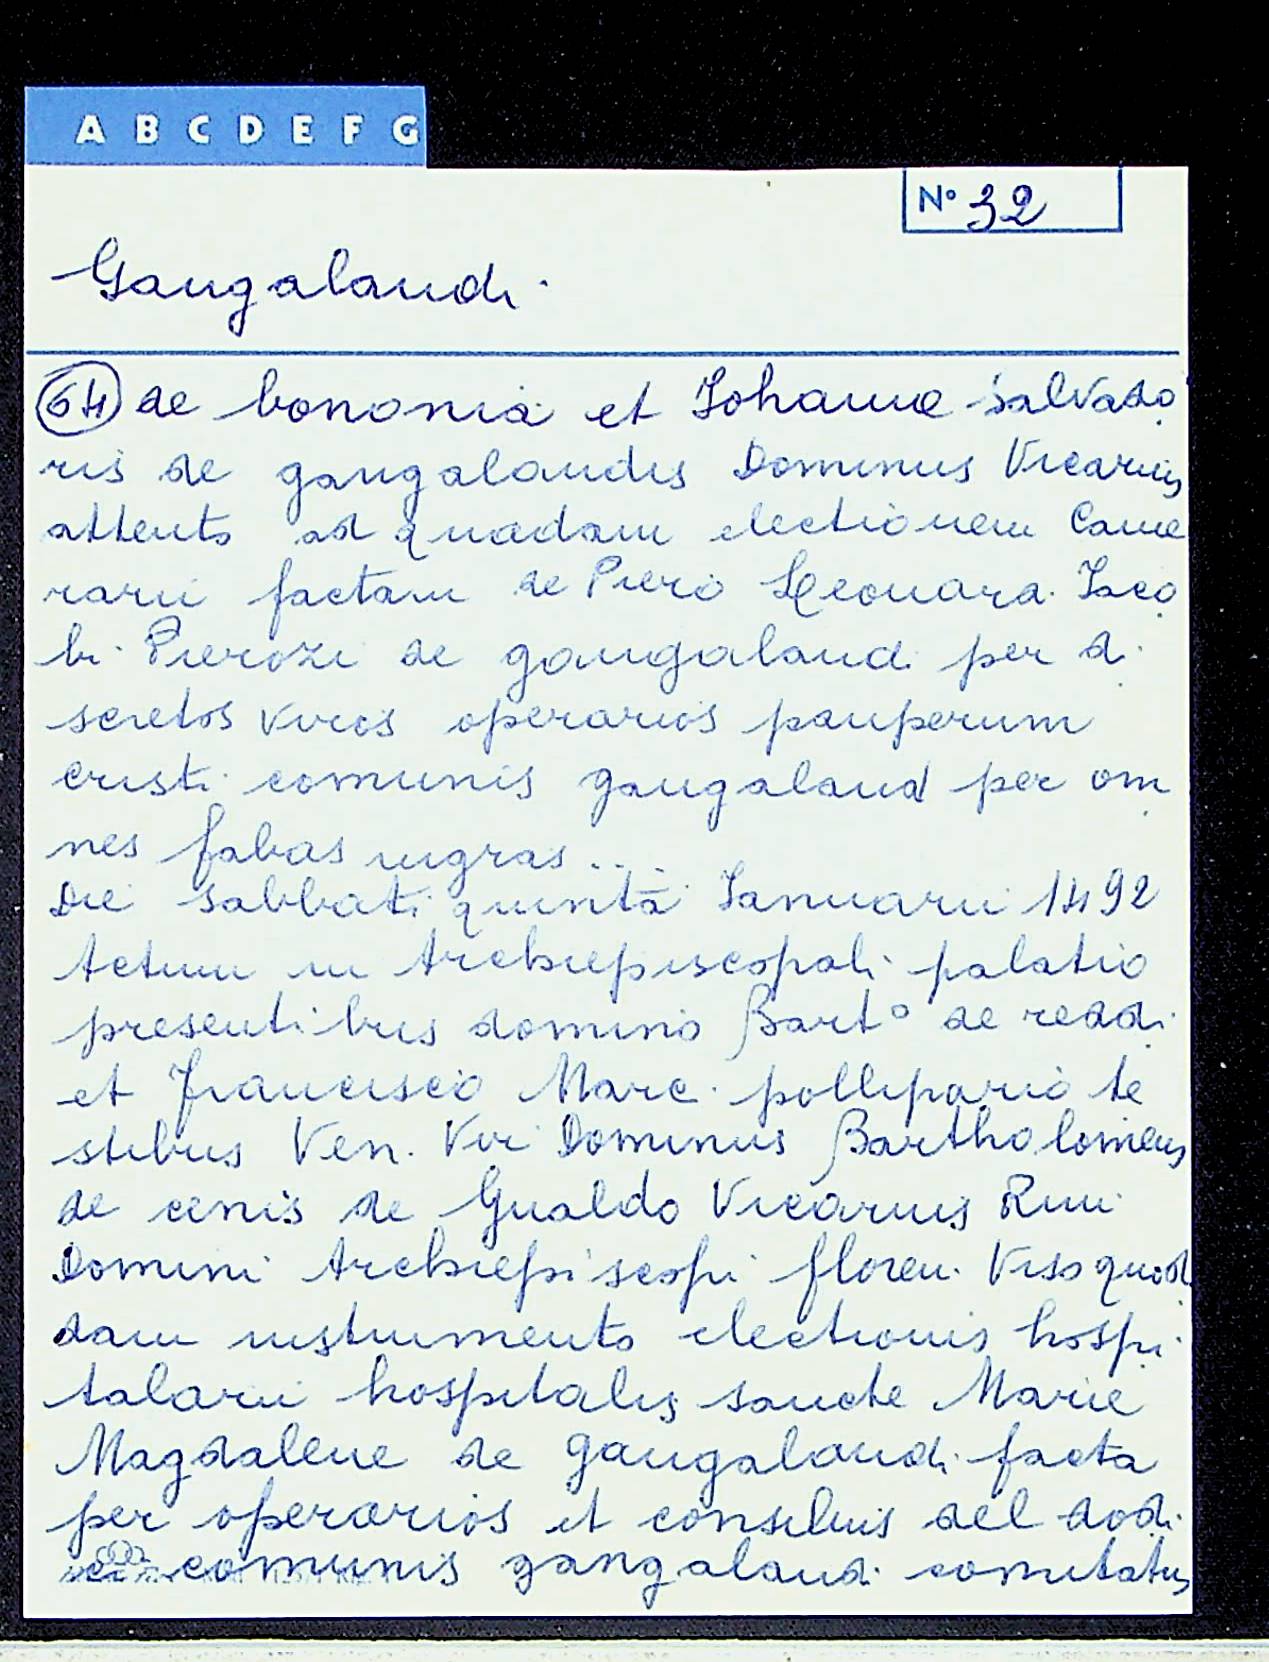 A B C D E F G
N° 32
Gangalandi
64 de bononia et Iohanne Salvado
ris de gangalandis Dominus Vicarius
attento ad quadam electionem Came
rarii factam de Piero Leonara. Iaco
bi Pierozi de gangalandi per di
scretos viros operarios pauperum
cristi comunis gangaland per om
nes fabas nigras ...
Die sabbati quinta Ianuarii 1492
Actum in Archiepiscopali palatio
presentibus domino Bart° de reddi
et Francisco Marc. pollipario te
stibus Ven. Vir Dominus Bartholomeus
de cenis de Gualdo Vicarius Rmi
Domini Archiepiscopi floren. Viso quod
dam instrumento electionis hospi
talarii hospitalis sancte Marie
Magdalene de gangalandi facta
per operarios et del dodi
ci comunis gangalandi comitatus